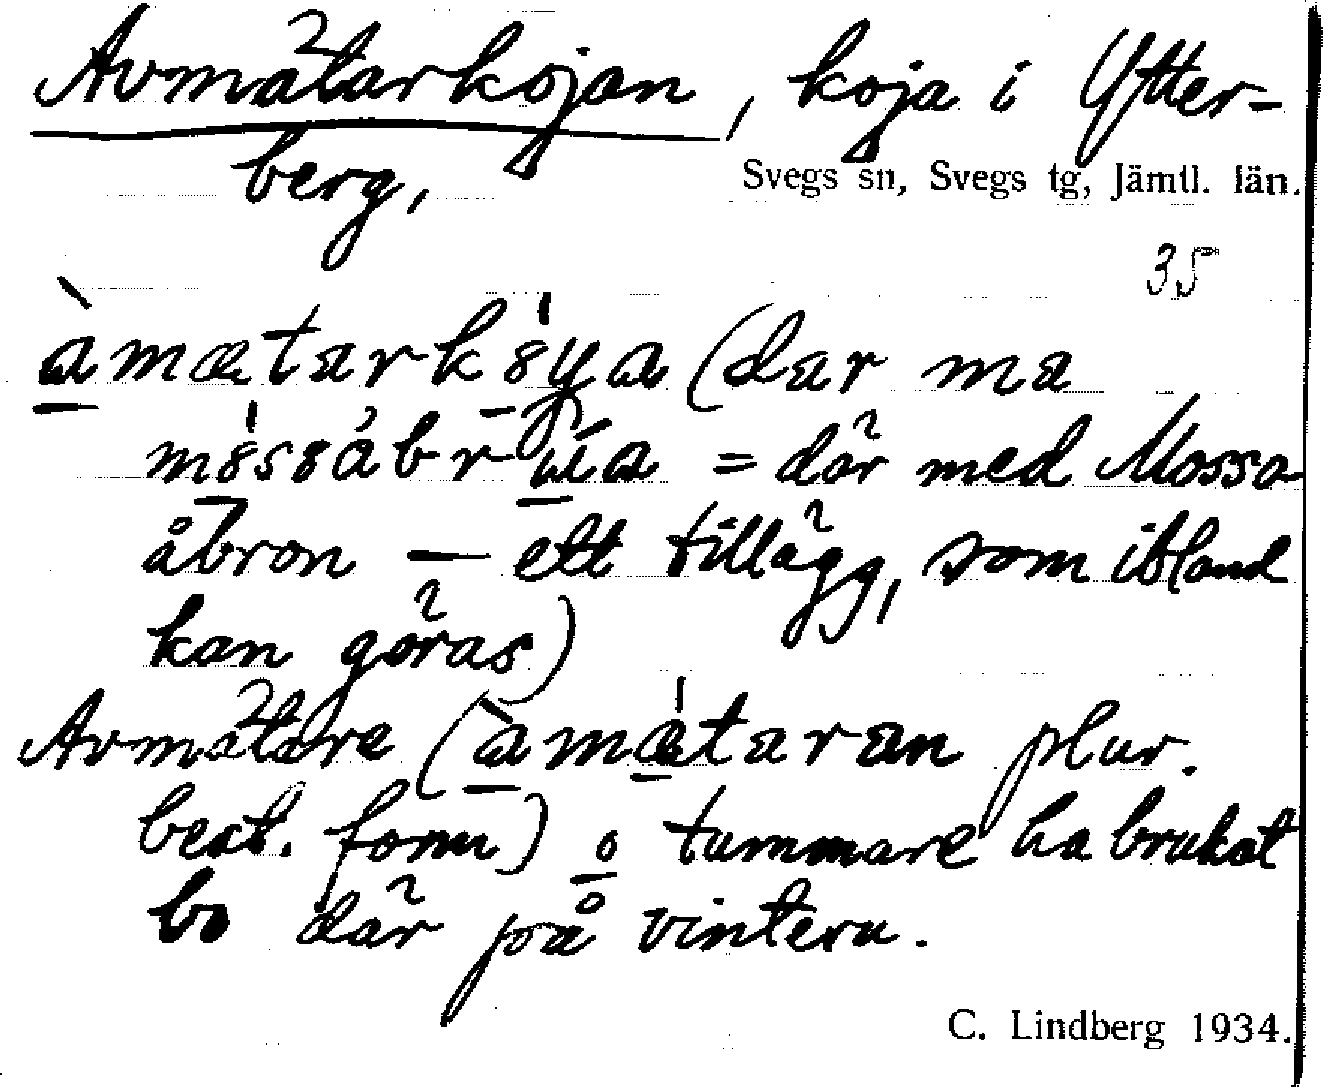 Avmätarkojan, koja i Ytter-
berg,
Svegs sn, Svegs tg, Jämtl. län.
35
àmætarkȯya (dar ma
mȯssåbrúa = där med Mossa
åbron — ett tillägg, som ibland
kan göras)
Avmätare (àmǽtaran plur.
best. form) o tummare ha brukat
bo där på vintern.
C. Lindberg 1934.